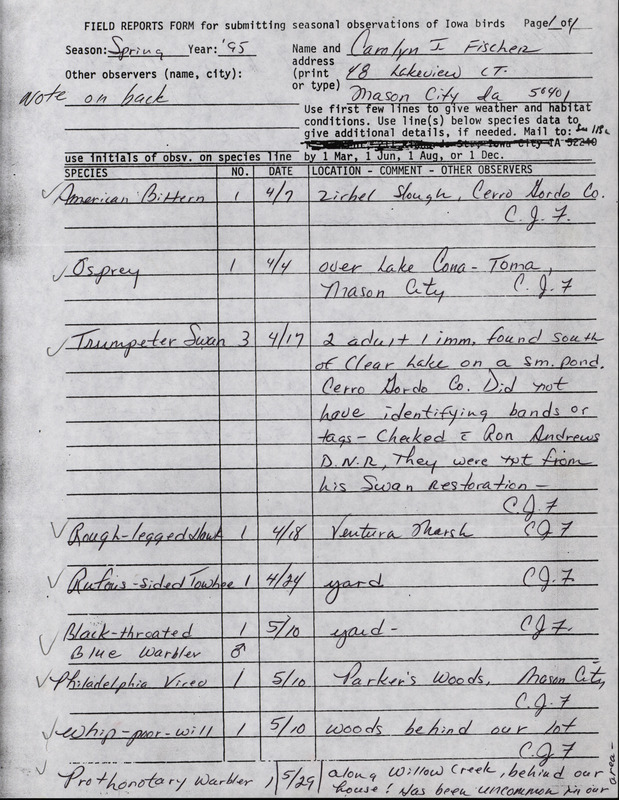 FIELD REPORTS FORM for submitting seasonal observations of Iowa birds Page 1 of 1
Season: Spring Year: '95 Name and Carolyn J. Fischer
address 48 Lakeview CT.
(print
or type) Mason City Ia 50401
Other observers (name, city):
Note on back
Use first few lines to give weather and habitat
conditions. Use line(s) below species data to
give additional details, if needed. Mail to:
use initials of obsv. on species line by 1 Mar, 1 Jun, 1 Aug, or 1 Dec.
SPECIES NO. DATE LOCATION - COMMENT - OTHER OBSERVERS
✓ American Bittern 1 4/7 Zirbel Slough, Cerro Gordo Co.
C.J.F.
✓ Osprey 1 4/4 over Lake Cona-Toma,
Mason City C.J.F
✓ Trumpeter Swan 3 4/17 2 adult 1 imm. found south
of Clear Lake on a sm. pond.
Cerro Gordo Co. Did not
have identifying bands or
tags - Checked c̄ Ron Andrews
D.N.R, They were not from
his Swan Restoration -
C.J.F
✓ Rough-legged Hawk 1 4/18 Ventura Marsh CJF
✓ Rufous-sided Towhee 1 4/24 yard C.J.F
Black-throated 1 5/10 yard - CJF.
✓ Blue Warbler ♂
✓ Philadelphia Vireo 1 5/10 Parker's Woods, Mason City,
C.J.F
✓ Whip-poor-will 1 5/10 woods behind our lot
CJF
✓ Prothonotary Warbler 1 5/29 along Willow Creek, behind our
house! Has been uncommon in our
area -